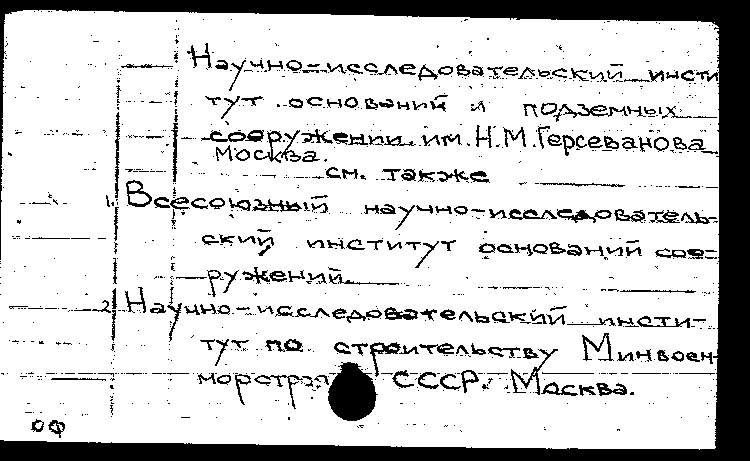 Научно-исследовательский инсти
тут оснований и подземных
сооружении им. Н.М. Герсеванова
Москва.
см. также
1. Всесоюзный научно-исследователь-
ский институт оснований соо-
ружений.
2. Научно-исследовательский инсти-
тут по строительству Минвоен-
морстроя СССР. Москва.
оф